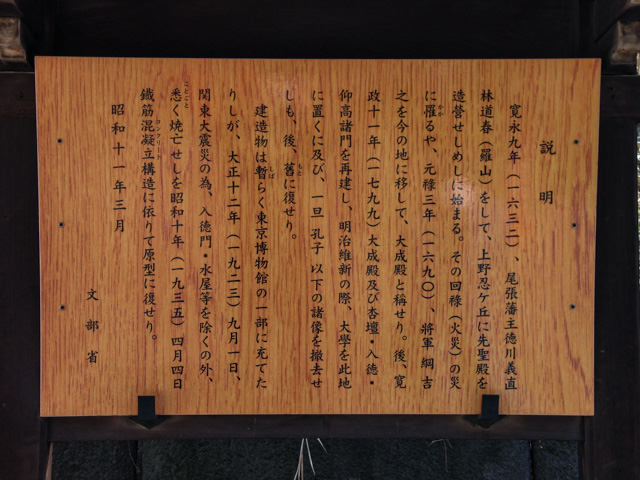 説明
寛永九年（一六三二）、尾張藩主徳川義直
林道春（羅山）をして、上野忍ケ丘に先聖殿を
造營せしめしに始まる。その回祿（火災）の災
に罹るや、元祿三年（一六九〇）、將軍 綱吉
之を今の地に移して、大成殿と称せり。後、寛
政十一年（一七九九）大成殿及び杏壇・入徳・
仰高諸門を再建し、明治維新の際、大學を此地
に置くに及び、一旦 孔子 以下の諸像を撤去せ
しも、後、舊に復せり。
建造物は暫らく東京博物館の一部に充てた
りしが、大正十二年（一九二三）九月一日、
関東大震災の為、入徳門・水屋等を除くの外、
悉く焼亡せしを昭和十年（一九三五）四月四日
鐵筋混凝立構造に依りて原型に復せり。
昭和十一年三月
文部省